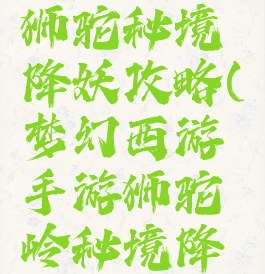 狮驼秘境
降妖攻略(
梦幻西游
手游狮驼
岭秘境降